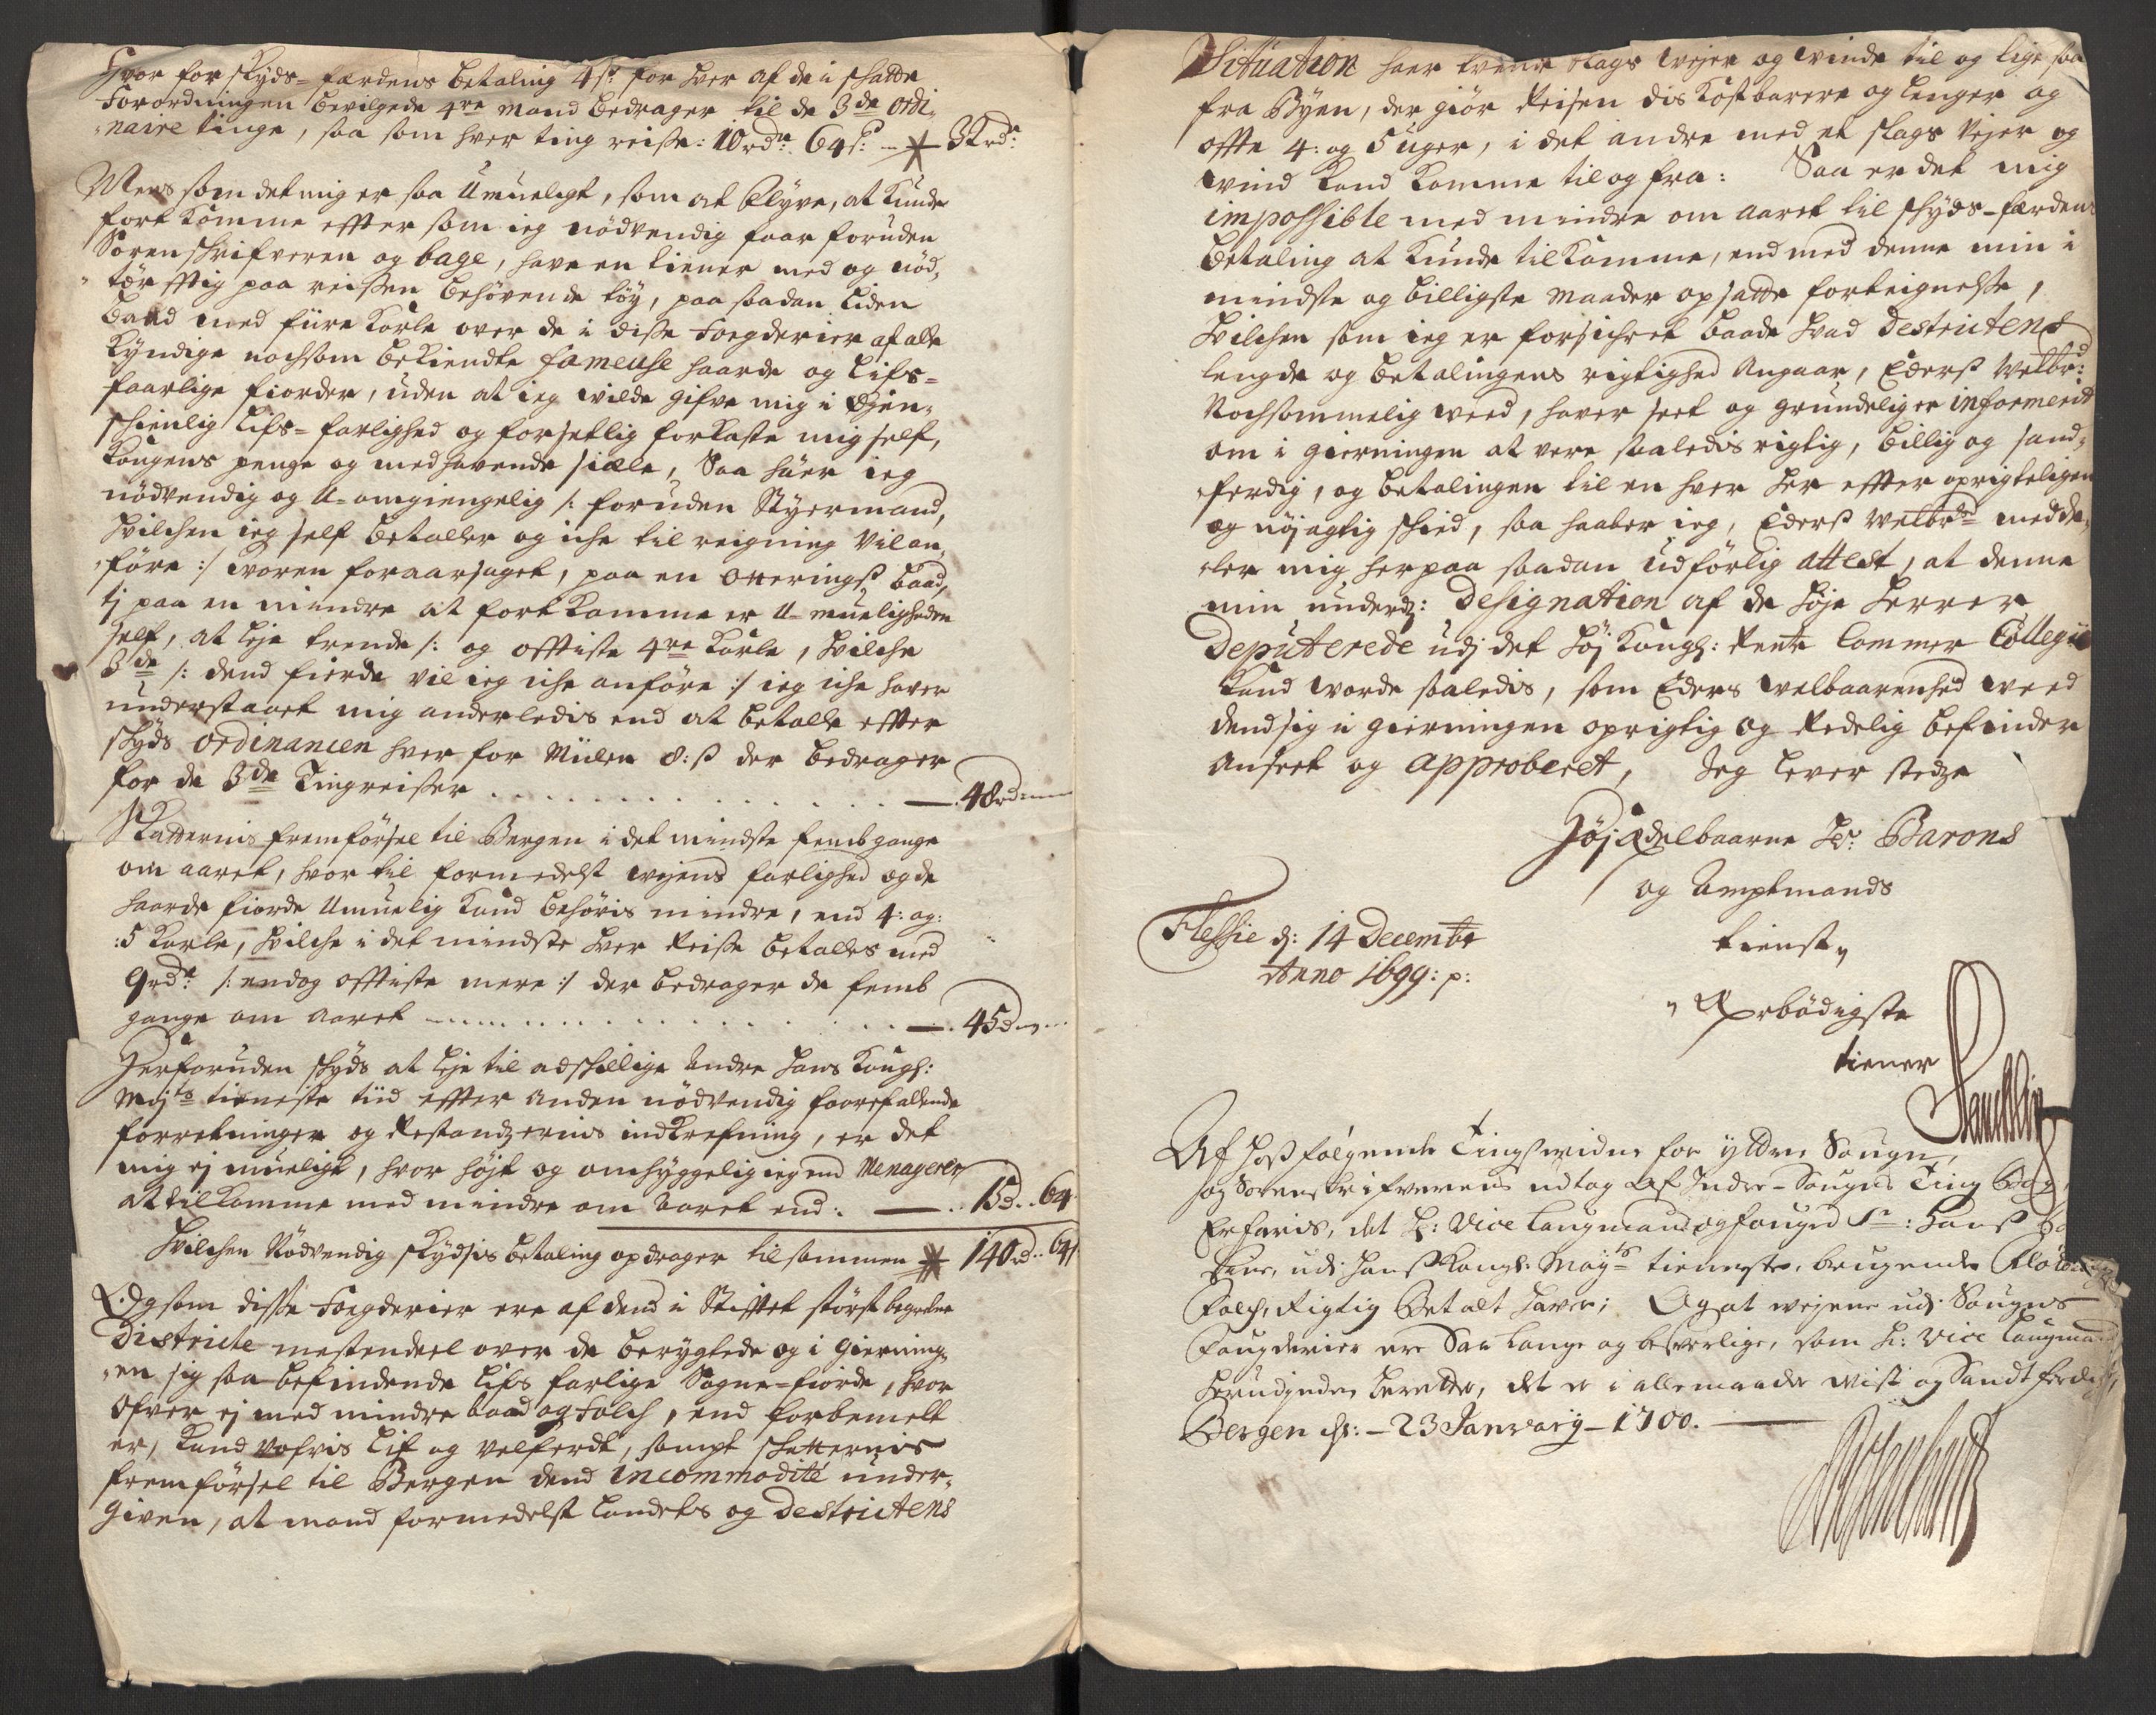 Hvor for skyds-færdens betaling 4 s: for hver af de i skatte
Forordningen bevilgede 4re mand bedrager til de 3de ordi-
naire tinge, saa som hver ting reise: 10 rdr: 64 s: 32 rdr:
Mens som det mig er saa Umueligt, som at flyve, at kunde
fort komme effter som ieg nödvendig faar foruden
Sorenskrifveren og bage, have en tiener med og nöd,
törfftig paa reisen behövende töy, paa saadan liden
baad med fiire karle over de i disse Fogderier af alle
kyndige nochsom bekiendte fameuse haarde og lifs-
faarlige fiorder, uden at ieg vilde gifve mig i øyen-
schienlig lifs-farlighed og forsetlig forkaste mig self,
Kongens penge og medhavende siæle, Saa haver ieg
nödvendig og U-omgiengelig /: foruden Styermand,
hvilchen ieg self betaller og iche til reigning vil an-
före :/ voren foraarsaget, paa en Otterings baad,
tj paa en mindre at fortkomme er U-mueligheden
self, at leje trende /: og offtiste 4re karle, hvilche
3de /: dend fierde vil ieg iche anföre :/ ieg iche haver
understaaet mig anderledis end at betalle effter
skyds ordinancen hver for Miilen 8: s der bedrager
for de 3de Tingreiser . . . . . 48 rd:
Skatternis fremförsel til Bergen i det mindste femb gange
om aaret, hvor til formedelst vejens farlighed og de
haarde fiorde Umuelig kand behövis mindre, end 4: og:
:5 karle, hvilche i det mindste hver Reise betalles med
9 rdr /: endog offtiste mere :/ der bedrager de femb
gange om aaret . . . . . 45 d
Herforuden skyds at leje til adskillige andre hans Kongl:
Majts tieneste tiid effter anden nödvendig faarefallende
forretninger og Restandzernis indkrefning, er det
mig ej mueligt, hvor höjt og omhyggelig ieg end Menagerer
at tilkomme med mindre om aaret end: 15 d. 64
Hvilchen Nödvendig skydsis betaling opdrager tilsammen 140 rd 64 s
Og som disse Fogderier ere af dend i Stifftet störst begrebne
Districte mestendeel over de berygtede og i gierning-
en sig saa befindende lifs farlige Sogne-fiorde, hvor
Ofver ej med mindre baad og Folch, end forbemelt
er, kand vofvis lif og velferdt, sampt skatternis
fremförsel til Bergen dend incommodité under-
given, at mand formedelst landets og Destrictens
Situation haer tvende slags vejer og vinde til og lige saa
fra Byen, der giör Reisen dis kostbarere og lenger og
offte 4: og 5 uger, i det andre med et slags Vejer og
vind kand komme til og fra: Saa er det mig
impossible med mindre om aaret til skyds-færdens
betaling at kunde tilkomme, end med denne min i
mindste og billigste maader opsatte forteignelse,
hvilchen som ieg er forsichret baade hvad Destrictens
lengde og betalingens rigtighed angaar, Eders Velbr:
Nochsommelig veed, haver seet og grundelig er informerit
om i gierningen at vere saaledis rigtig, billig og sand-
ferdig, og betalingen til en hver her effter oprigteligen
og nöjagtig skied, saa haaber ieg, Eders Velbrhd medde-
eler mig herpaa saadan udförlig attest, at denne
min underd: Designation af de höje Herrer
Deputerede udj det höj Kongl: Rente Cammer Collegii
kand vorde saaledis, som Eders velbaarenhed veed
dend sig i gierningen oprigtig og Redelig befinder
anseet og approberet, Jeg lever stedze
Höj Ædelbaarne Hr: Barons
og Amptmands
tienst
Ærbödigste
tiener
Flessie d: 14 Decembr
Anno 1699: p:
Af hoss fölgende Tingsvidne for yttre Sougn,
og Sorenskrifverens udtog af Indre-Sougns Ting Bog,
Erfaris, det H: Vice Laugmand og fouged Sr: Hans
udi Hans Kongl: Mayts tieneste, brugende
Folch, Rigtig Betalt haver; Og at vejene udi Sougns
Fougderier ere Saa lange og besverlige, som H: Vice Laugmand
herudinden beretter, det er i allemaader vist og Sandferdigt,
Bergen d: 23 January 1700.